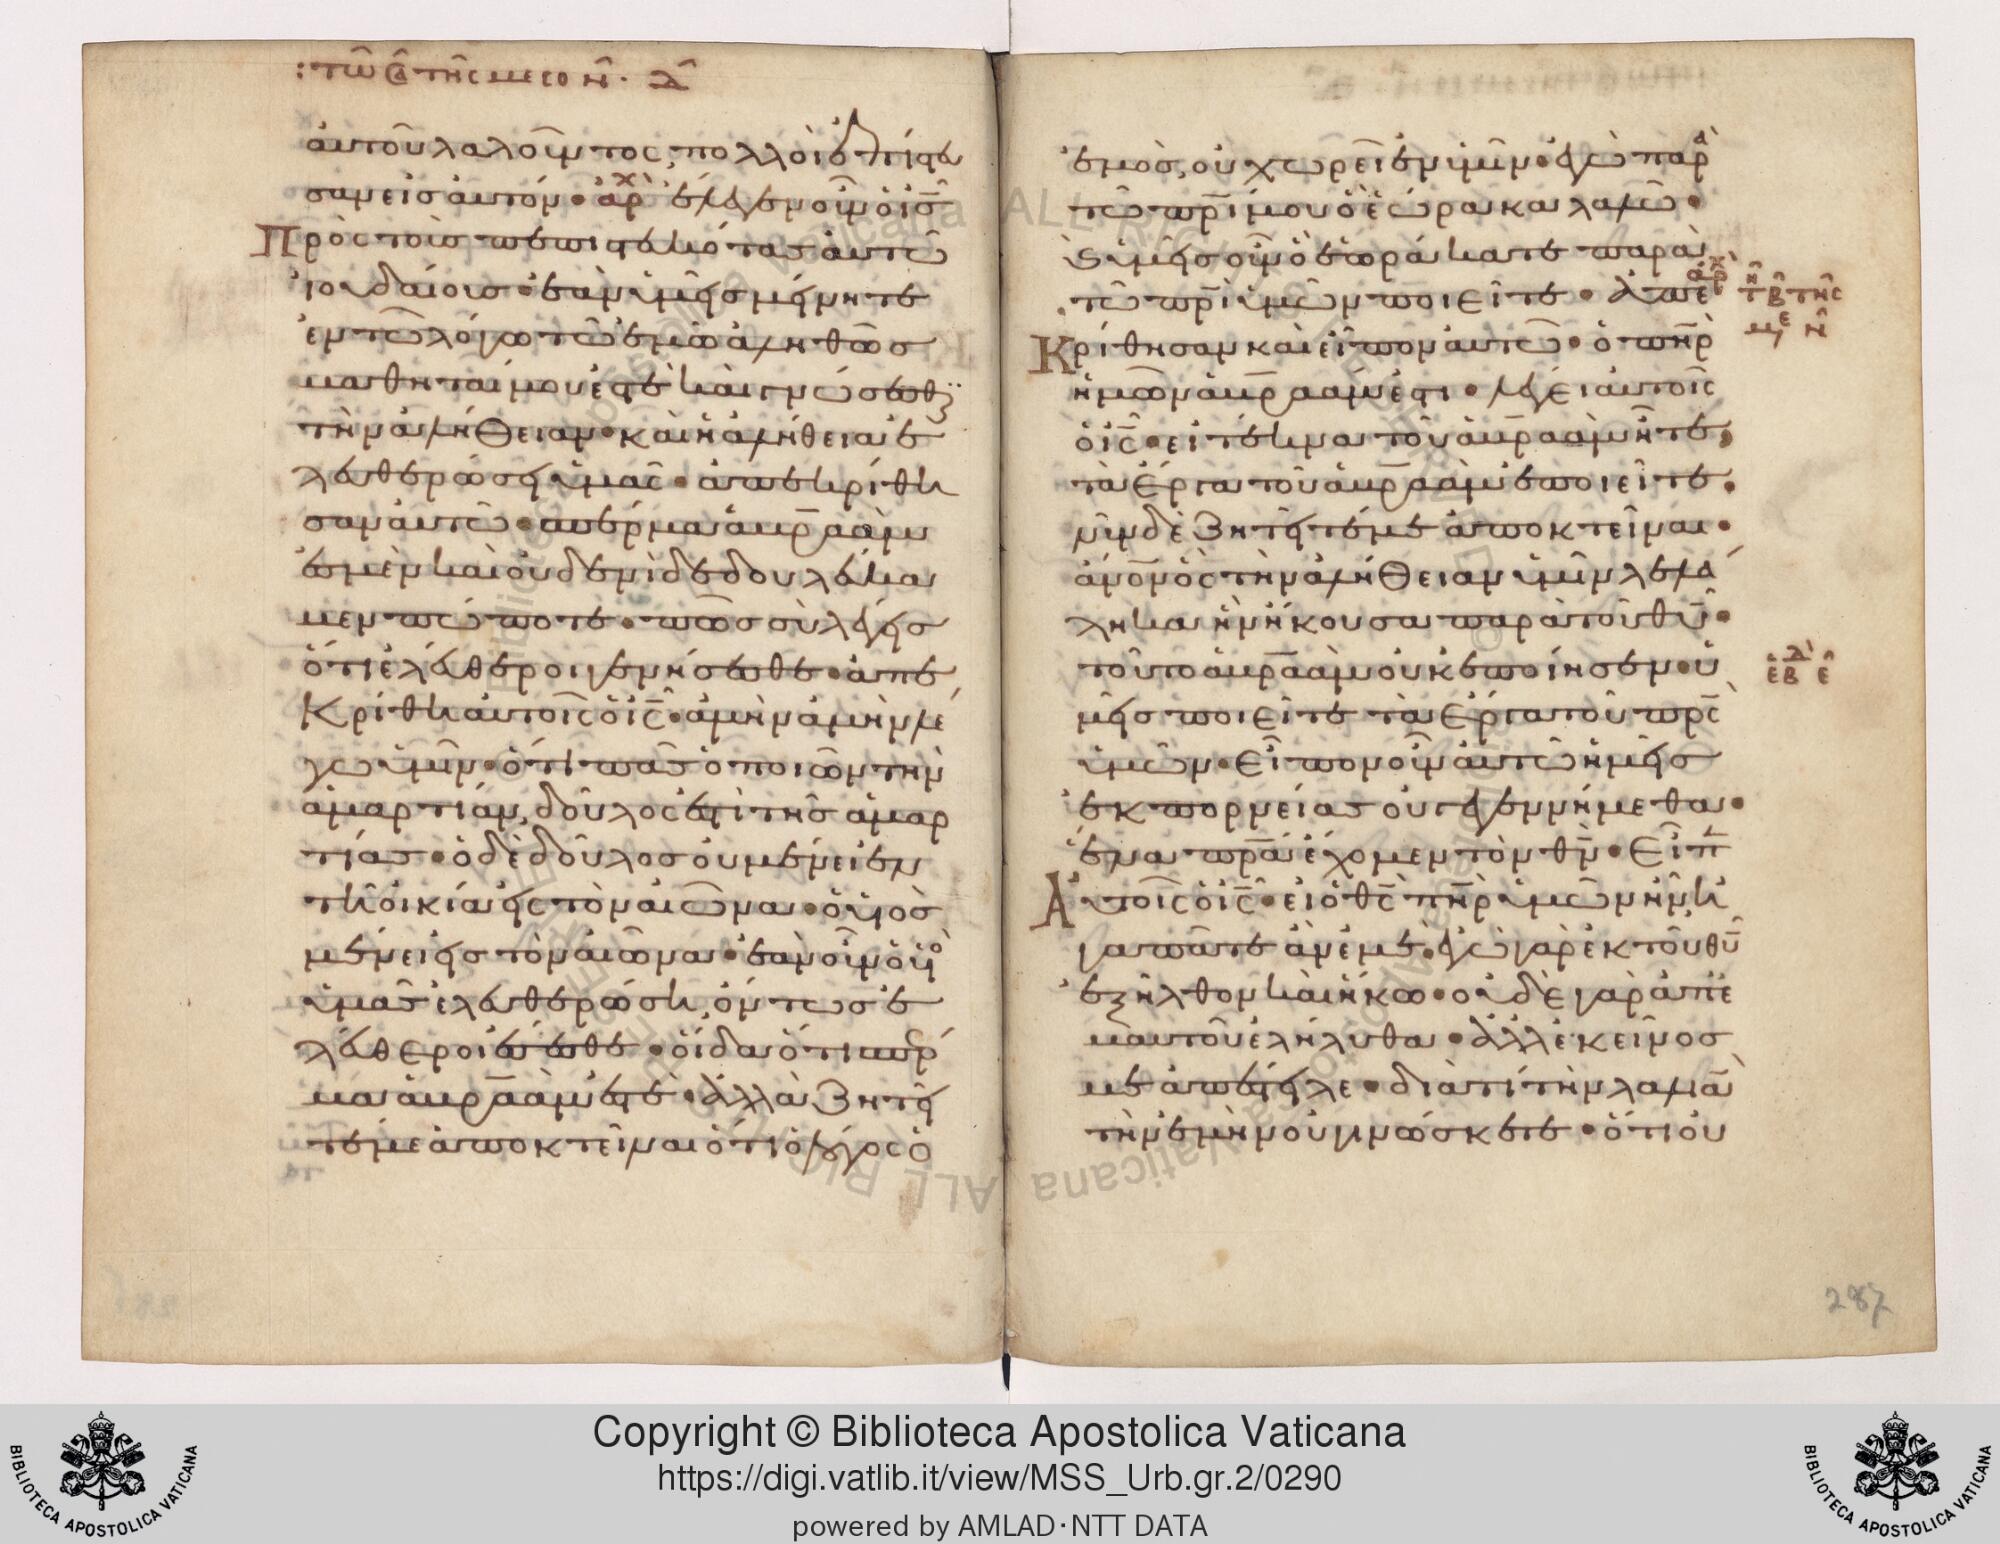 : τῶ Cα τῆς μεσο ν̂. Δ̂
αυτοῦ λαλοῦντος, πολλοὶ ἐπίστευ
σαν εἰς αυτόν • ἀρχ ἔλεγεν οὖν ὁ ις̅
Πρὸς τοὺς πεπιστευκότας αυτῶ
ἰουδαίους • ἐὰν ὑμεῖς μείνητε
ἐν τῶ λόγω τῶ ἐμῶ ἀληθῶς
μαθηταί μου ἐστὲ καὶ γνώσεσθε
τὴν ἀλήθειαν • καὶ ἡ ἀλήθεια ἐ
λευθερώσει ὑμᾶς • ἀπεκρίθη
σαν αὐτῶ • σπέρμα ἀβρ̅αάμ
ἐσμὲν καὶ οὐδενὶ δεδουλεύκα
μεν πώποτε • πῶς σὺ λέγεις
ὅτι ἐλεύθεροι γενήσεσθε • ἀπε
κρίθη αὐτοῖς ὁ ις̅ • ἀμὴν ἀμὴν λέ
γω ὑμῖν • ὅτι πᾶς ὁ ποιῶν τὴν
ἁμαρτίαν, δοῦλος ἐστὶ τῆς ἁμαρ
τίας • ὁ δὲ δοῦλος οὐ μένει ἐν
τῆ οἰκία εἰς τὸν αἰῶνα • ὁ υἱὸς
μένει εἰς τὸν αἰῶνα • ἐὰν οὖν ὁ υἱὸ
ὑμᾶς ἐλευθερώση, ὄντως ἐ
λεύθεροι ἔσεσθε • οἶδα ὅτι σπέρ
μα ἀβρ̅αάμ ἐστὲ • ἀλλὰ ζητεῖ
τέ με ἀποκτεῖναι ὅτι ὁ λόγος ὁ
ἐμὸς, οὐ χωρεῖ ἐν ὑμῖν • ἐγὼ παρὰ
τῶ πρ̅ί μου ὃ ἑώρακα λαλῶ •
καὶ ὑμεῖς οὖν ὃ ἑωράκατε παρὰ
τῶ πρ̅ὶ ὑμῶν ποιεῖτε • ἀρχ ἀπε
τῆ β̅ τῆς
με ν̂
Κρίθησαν καὶ εἶπον αὐτῶ • ὁ πη̅ρ
ἡμῶν ἀβρ̅αάμ ἐστι • λέγει αὐτοῖς
ὁ ις̅ • εἰ τέκνα τοῦ ἀβρ̅αὰμ ἦτε,
τὰ ἔργα τοῦ ἀβρ̅αὰμ ἐποιεῖτε •
νῦν δὲ ζητεῖτέ με ἀποκτεῖναι •
ἀν̅ον ὃς τὴν ἀλήθειαν ὑμῖν λελά
ληκα ἣν ἤκουσα παρὰ τοῦ θυ̅ •
τοῦτο ἀβρ̅αὰμ οὐκ ἐποίησεν • ὑ
ε̂ Δ β̅ ε̂
μεῖς ποιεῖτε τὰ ἔργα τοῦ πρ̅ς
ὑμῶν • εἶπον οὖν αὐτῶ ἡμεῖς
ἐκ πορνείας οὐ γεγεννήμεθα •
ἕνα πρ̅α ἔχομεν τὸν θν̅ • εἶπ
Αὐτοῖς ὁ ις̅ • εἰ ὁ θς̅ πη̅ρ ὑμῶν ἦν, ἠ
γαπᾶτε ἂν ἐμέ • ἐγὼ γὰρ ἐκ τοῦ θυ̅
ἐξῆλθον καὶ ἥκω • οὐδὲ γὰρ ἀπ ἐ
μαυτοῦ ἐλήλυθα • ἀλλ ἐκεῖνος
με ἀπέστειλε • διὰ τί τὴν λαλιὰν
τὴν ἐμὴν οὐ γινώσκετε • ὅτι οὐ
287
Copyright © Biblioteca Apostolica Vaticana
https://digi.vatlib.it/view/MSS_Urb.gr.2/0290
powered by AMLAD·NTT DATA
BIBLIOTECA APOSTOLICA VATICANA
BIBLIOTECA APOSTOLICA VATICANA